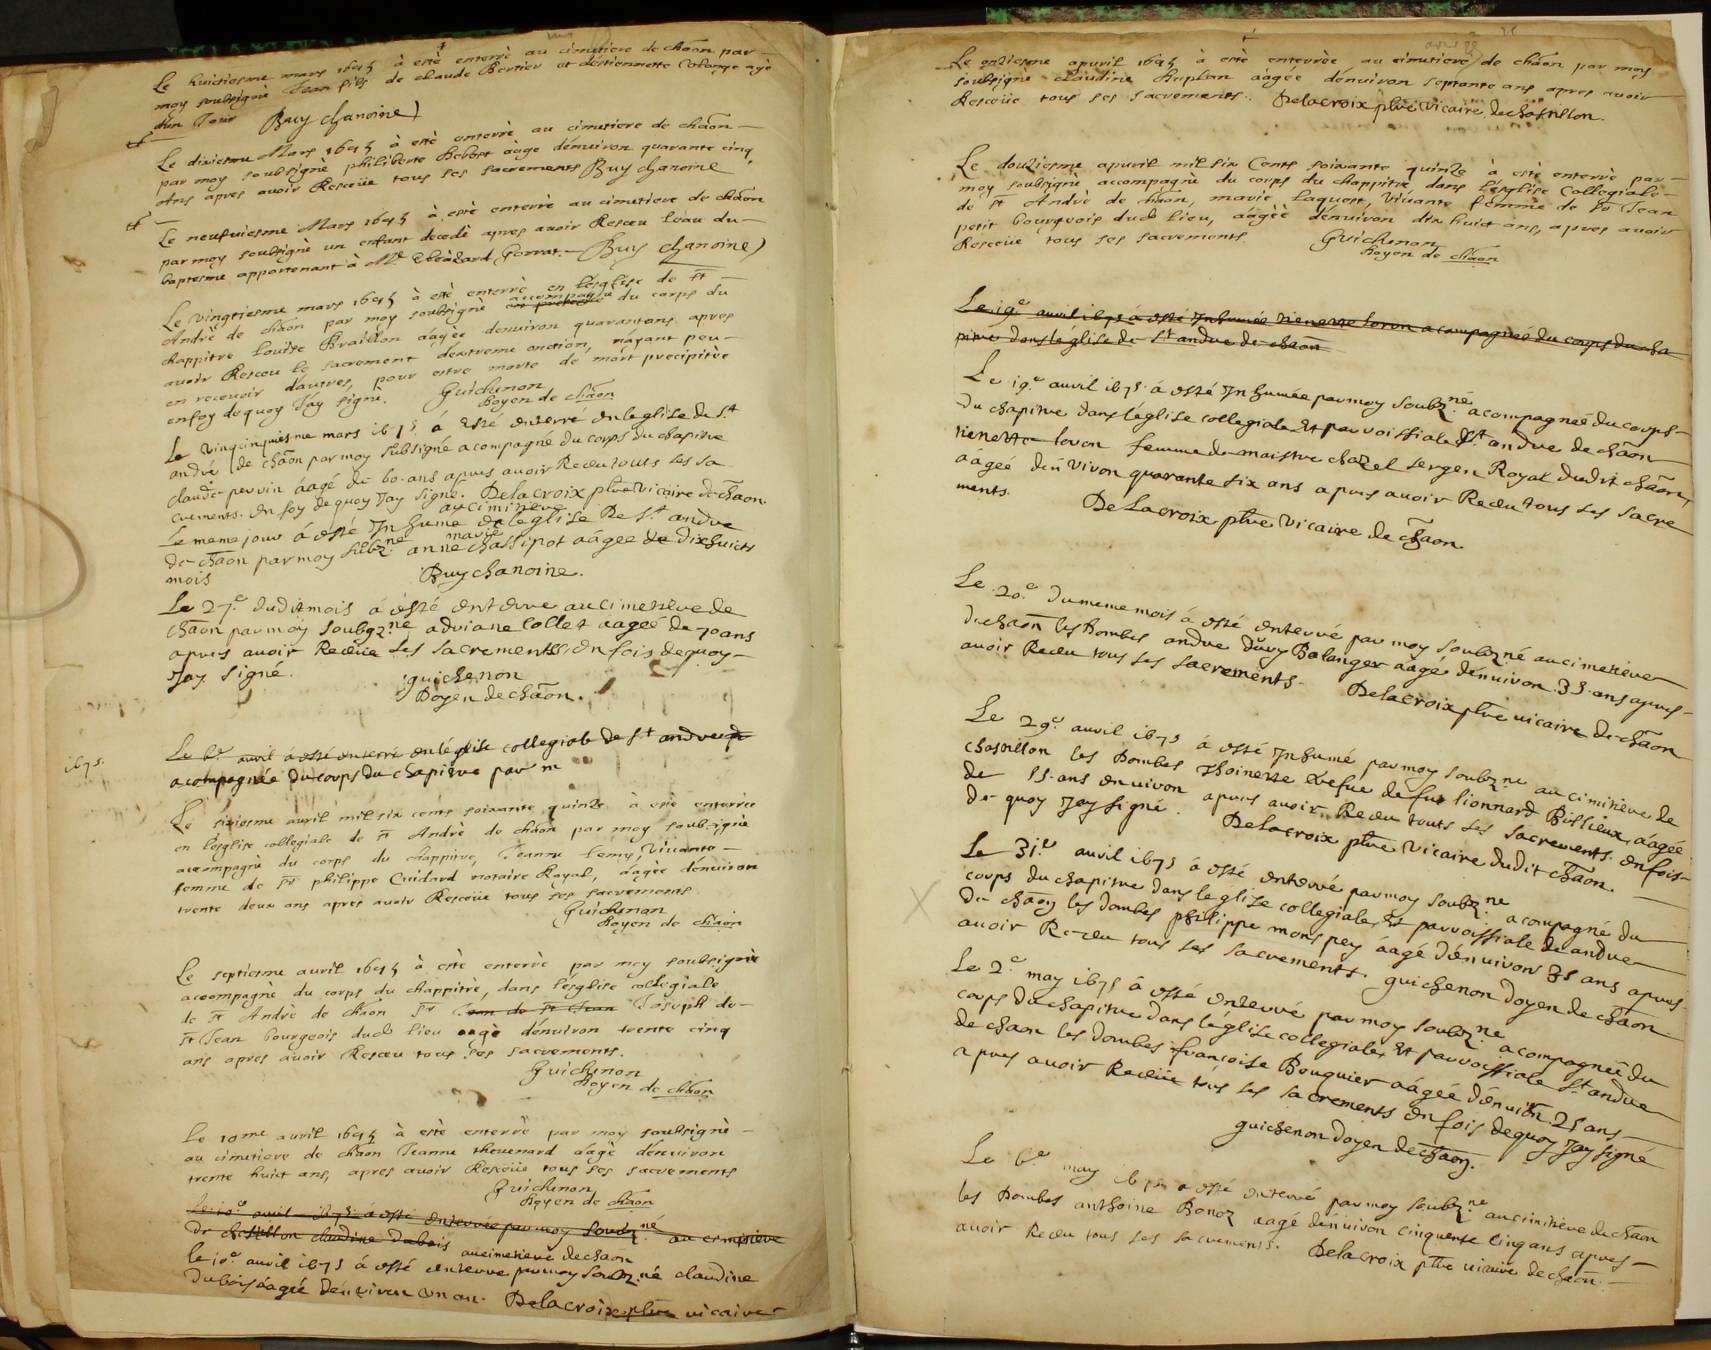 Le huictiesme mars 1675 à esté enterré au cimetiere de chãon par
moy soubsigné Jean fils de claude Bertier et destiennette
dun Jour Buy chanoine
Le dixiesme Mars 1675 à esté enterré au cimetiere de chãon
par moy soubsigné philiberte aâge dénuiron quarante cinq
Ans apres avoir Resceüe tous ses sacrements Buy chanoine
Le neufuiesme Mars 1675 à esté enterré au cimetiere de chãon
par moy soubsigné un enfant decedé apres auoir Resceu leau du
baptesme appartenant à Mr Gorrat. Buy chanoine
Le vingtiesme mars 1675 à esté enterré en lésglise de st
Andrè de chãon par moy soubsigné accompagné du corps du
chappitre Louise Braillon aâgèe denuiron quarantans apres
auoir Resceu le sacrement déxtreme onction, náyant peu
en recevoir dautres, pour estre morte de mort precipitèe
en foy de quoy Jáy signè. Guichenon
Doyen de chãon
Le vingcinquiesme mars 1675 á esté enterré en leglise de st
andré de chãon par moy subsigné acompagné du corps du chapitre
claude perrin áagé de 60 ans apres auoir Receu touts les sa
crements. en foy de quoy Jay signé. Delacroix ptre vicaire de chãon
au cimitiere
Le meme jour á esté Inhumé en leglise De st andre
de chãon par moy soubzné anne marie chassipot aagee de dixhuicts
mois Buy chanoine.
Le 27e dudit mois á ésté enterre au cimetiere de
chãon par moy soubzné adriane collet aageé de 70 ans
apres auoir Receüe les sacrements en fois de quoy
Jay signé. guichenon
Doyen de chãon.
1675.
Le 6e auril á esté enterré en léglise collegiale de st andre
acompagnée du corps du chapitre par m
Le sixiesme avril mil six cents soixante quinze à esté enterrée
en lésglise collegiale de st Andrè de chãon par moy soubsignè
accompagné du corps du chappitre, Jeanne Lemy, viuante
femme de sr philippe Cuidard notaire Royal, aâgèe dénuiron
trente deux ans apres avoir Resceüe tous ses sacrements
Guichenon
Doyen de chãon
Le septiesme avril 1675 à estè enterré par moy soubsigné
accompagné du corps du chappitre, dans lésglise collegiale
de st Andrè de chãon sr Jean de st Jean Joseph de
st Jean bourgeois dud lieu aagè dénuiron trente cinq
ans apres avoir Resceu tous ses sacrements.
Guichenon
Doyen de chãon
Le 10me avril 1675 à estè enterré par moy soubsigné
au cimetiere de chãon Jeanne thevenard aâgè dénuiron
trente huict ans, apres avoir Resceüe tous ses sacrements
Guichenon
Doyen de chãon
Le 10e auril 1675 á esté enterrée par moy soubzné au cimitiere
de chastillon claudine dubois au cimetiere de chaon
le 10e auril 1675 á esté enterré par moy soubzné claudine
Dubois áagée dénuiron un an. Delacroix ptre vicaire
Le onziesme apuril 1675 à estè enterrée au cimetiere de chãon par moy
soubsigné claudine aagée dénuiron septante ans apres avoir
Resceüe tous ses sacrements. Delacroix ptre vicaire de chastillon.
Le douziesme apuril mil six Cents soixante quinze à estè enterré par
moy soubsigné accompagné du corps du chappitre, dans lésglise Collegiale
de st Andrè de chãon, marie Laquest, viuante femme de sr Jean
petit bourgeois dud lieu, aâgèe dénuiron dix huict ans, apres avoir
Resceüe tous ses sacrements. Guichenon
Doyen de chãon
Le 19e auril 1675 á esté Inhumée tienette loron acompagneé du corps du cha
pitre dans léglise de st andre de chãon
Le 19e auuril 1675 á esté Inhumée par moy soubzné acompagneé du corps
du chapitre dans léglise collegiale et parroissiale st andre de chãon
tienette loron femme de maistre chazel sergen Royal dudit chãon,
áageé dén viron quarante six ans apres auoir Receu tous ses sacre
ments. De Lacroix ptre vicaire de chãon.
Le 20e du meme mois á esté enterré par moy soubzné au cimetiere
de chaon les Dombes andre dury Bolanger áagé dénuiron 35 ans apres
auoir Receu tous ses sacrements. Delacroix ptre vicaire de chãon
Le 29e auuril 1675 á esté Inhumé par moy soubzné au cimitiere de
chastillon les Dombes Thoinette vefue de fut lionnard Bissieux áagée
de 55 ans enuiron apres auoir Receu touts ses sacrements. en fois
de quoy Jay signé. Delacroix ptre vicaire dudit chãon.
Le 31e auuril 1675 á esté enterré par moy soubzné acompagné du
corps du chapitre dans leglise collegiale et parroissiale de andre
de chãon les dombes philippe monspey áagé dénuiron 35 ans apres
auoir Receu tous ses sacrements. guichenon doyen de chãon
Le 2e may 1675 á esté enterré par moy soubzné acompagneé du
corps du chapitre dans léglise collegiale et parroissiale st andre
de chaon les dombes francoise Bouquier áagée dénuiron 25 ans
apres auoir Receüe tous ses sacrements en fois de quoy Jay signé
guichenon doyen de chaon.
Le 6e may 1675 á esté enterré par moy soubzné au cimitiere de chaon
les Dombes anthoine Bonoz aagé dénuiron cinquente cinq ans apres
auoir Receu tous ses sacrements. Delacroix ptre vicaire de chaon.